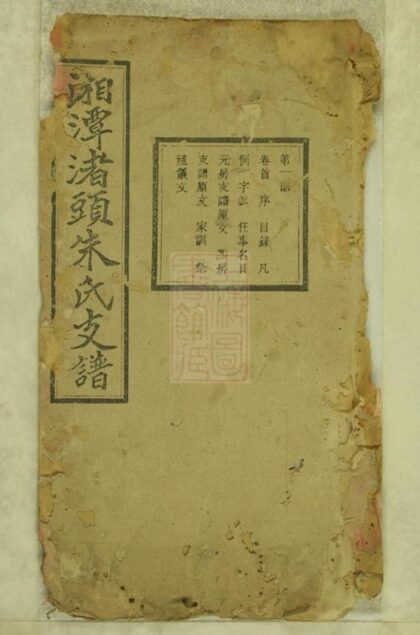 湘潭渚頭朱氏支譜
第一部
卷首 序 目錄 凡
例 字派 任事名目
元房支譜原文 房
支譜原文 家訓 祭
祖儀文